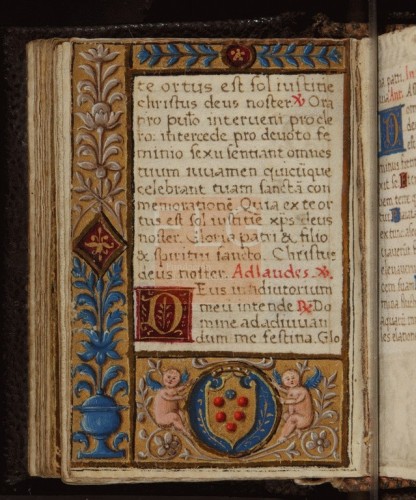 te ortus est sol iustitie
christus deus noster. ℣ Ora
pro pulo interueni pro cle
ro: intercede pro deuoto fe
minio sexu sentiant omnes
tuum iuuamen quicūque
celebrant tuam sanctā con
memorationē. Quia ex te or
tus est sol iustitie xp̄s deus
noster. Gloria patri & filio
& spiritui sancto. Christus
deus noster. Ad laudes. ℣.
Deus in adiutorium
meū intende ℟ Do
mine ad adiuuan
dum me festina. Glo